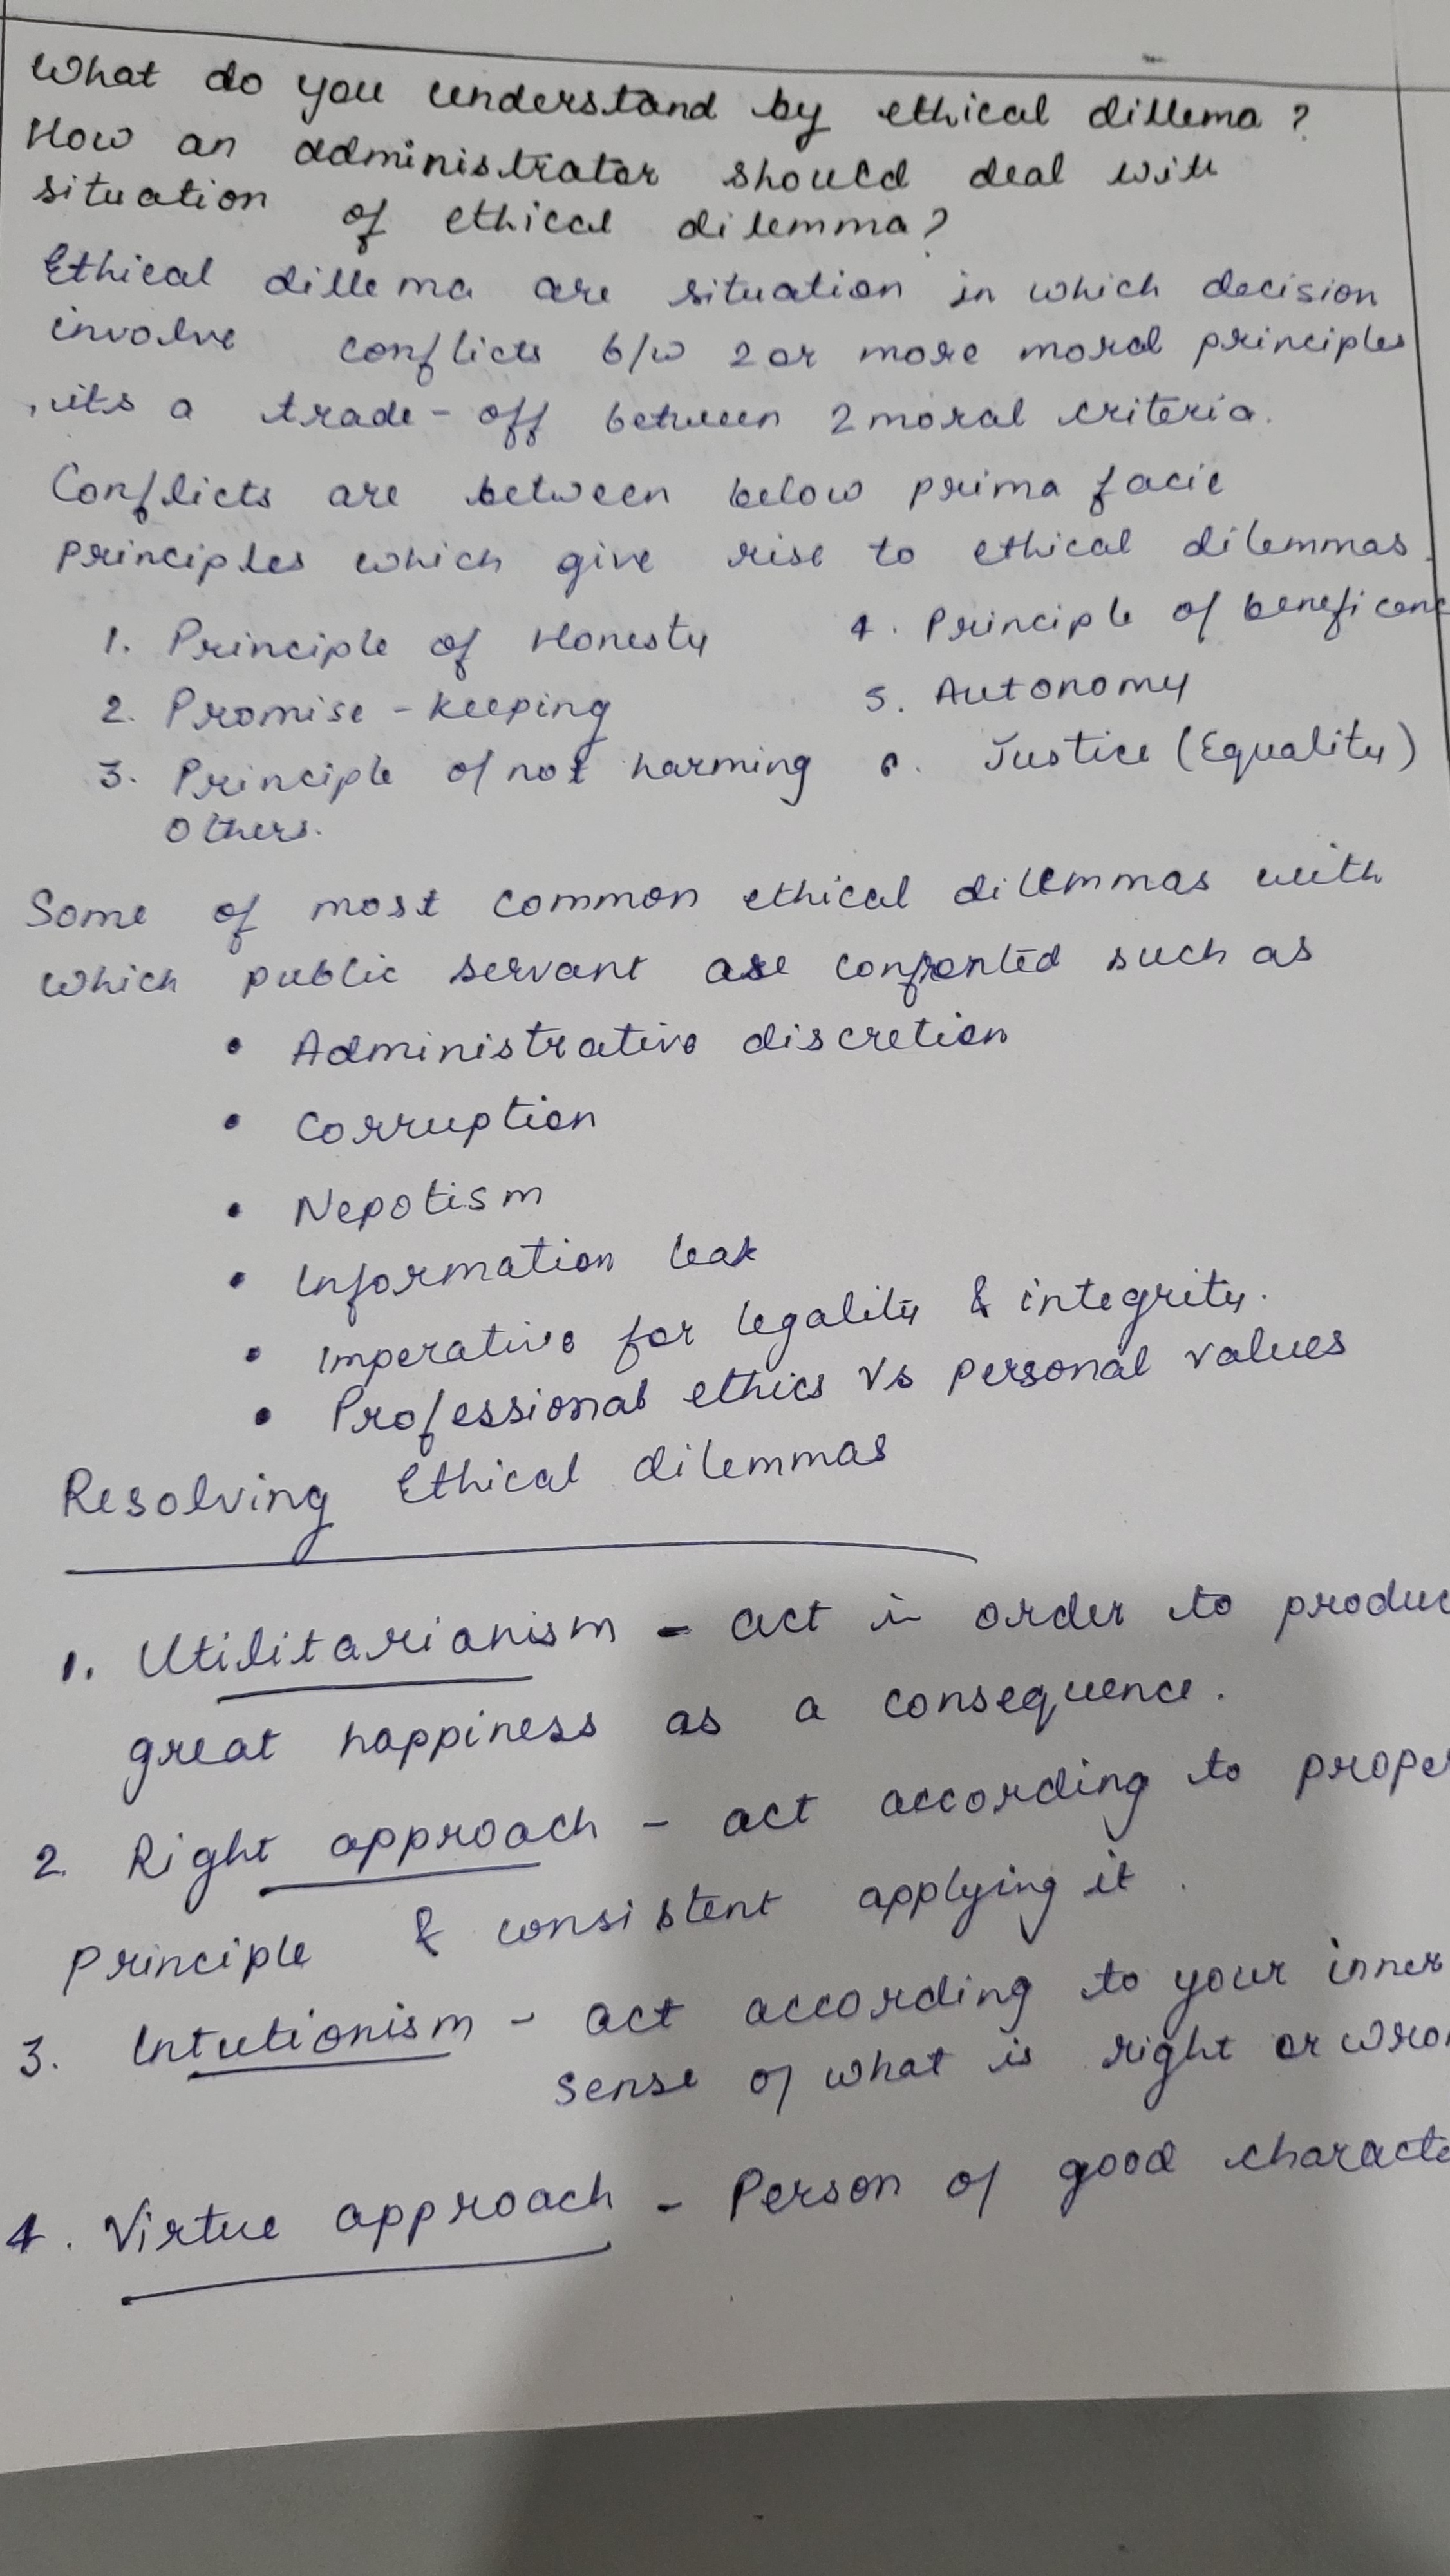 What do you understand by ethical dillema?
How an administrator should deal with
situation of ethical dilemma?
Ethical dillema are situation in which decision
involve conflicts b/w 2 or more moral principles
, its a trade-off between 2 moral criteria.
Conflicts are between below prima facie
principles which give rise to ethical dilemmas.
1. Principle of Honesty
2. Promise-keeping
3. Principle of not harming
others.
4. Principle of beneficenc
5. Autonomy
6. Justice (Equality)
Some of most common ethical dilemmas with
which public servant are confronted such as
• Administrative discretion
• Corruption
• Nepotism
• Information leak
• Imperative for legality & integrity.
• Professional ethics Vs personal values
Resolving Ethical dilemmas
1. Utilitarianism - act in order to produc
great happiness as a consequence.
2. Right approach - act according to proper
Principle & consistent applying it.
3. Intutionism - act according to your inner
sense of what is right or wron
4. Virtue approach - Person of good characte